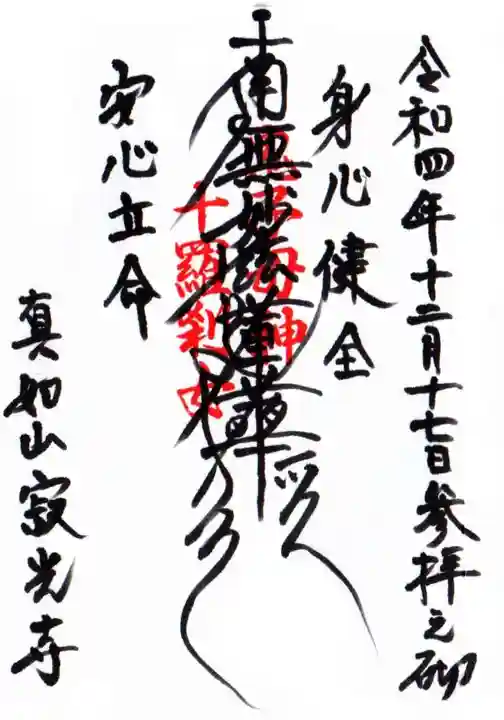 令和四年十二月十七日参拝之砌
身心健全
鬼子母神
南無妙法蓮華経
十羅刹女
安心立命
真如山寂光寺